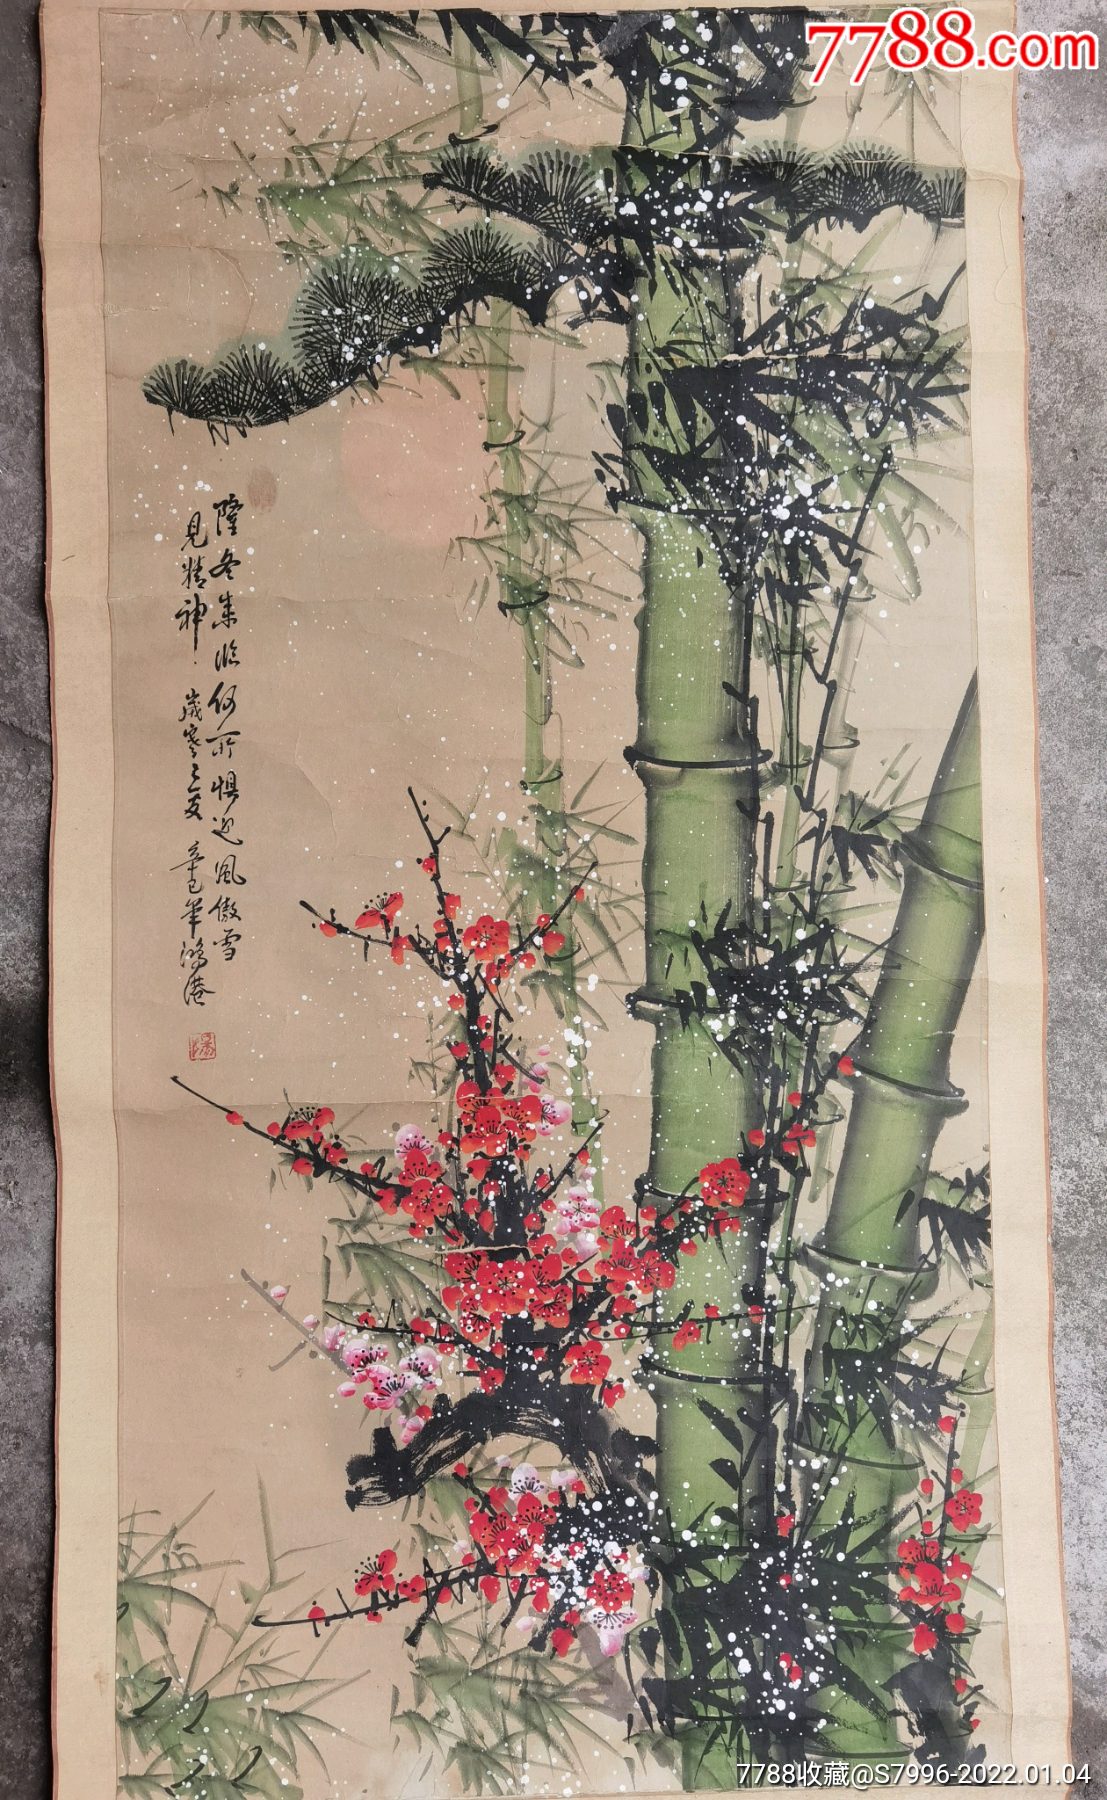 7788.com
隆冬来临何所惧迎风傲雪
见精神.岁寒三友 辛巳年 鸿港
7788收藏@S7996-2022.01.04